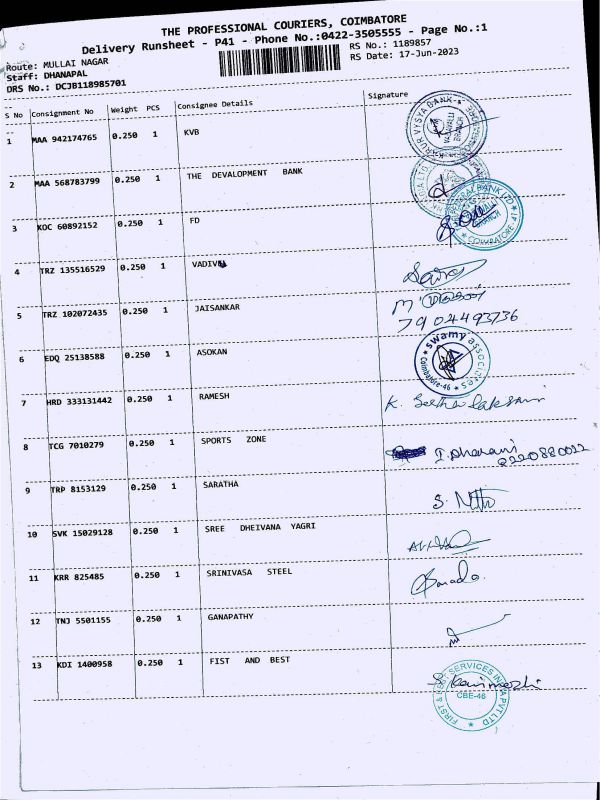 THE PROFESSIONAL COURIERS, COIMBATORE
Delivery Runsheet - P41 - Phone No.:0422-3505555 - Page No.:1
Route: MULLAI NAGAR
RS No.: 1189857
Staff: DHANAPAL
RS Date: 17-Jun-2023
DRS No.: DCJB118985701
S No Consignment No Weight PCS Consignee Details Signature
1 MAA 942174765 0.250 1 KVB
KARUR VYSYA BANK
2 MAA 568783799 0.250 1 THE DEVALOPMENT BANK
3 KOC 60892152 0.250 1 FD
COIMBATORE
4 TRZ 135516529 0.250 1 VADIVEL
5 TRZ 102072435 0.250 1 JAISANKAR
7904493736
6 EDQ 25138588 0.250 1 ASOKAN
swamy associates
Coimbatore-46
7 HRD 333131442 0.250 1 RAMESH K.
8 TCG 7010279 0.250 1 SPORTS ZONE I. Dharani
9 TRP 8153129 0.250 1 SARATHA
10 SVK 15029128 0.250 1 SREE DHEIVANA YAGRI
11 KRR 825485 0.250 1 SRINIVASA STEEL
12 TNJ 5501155 0.250 1 GANAPATHY
13 KDI 1400958 0.250 1 FIST AND BEST
FIRST & BEST SERVICES INDIA PVT LTD
CBE-46